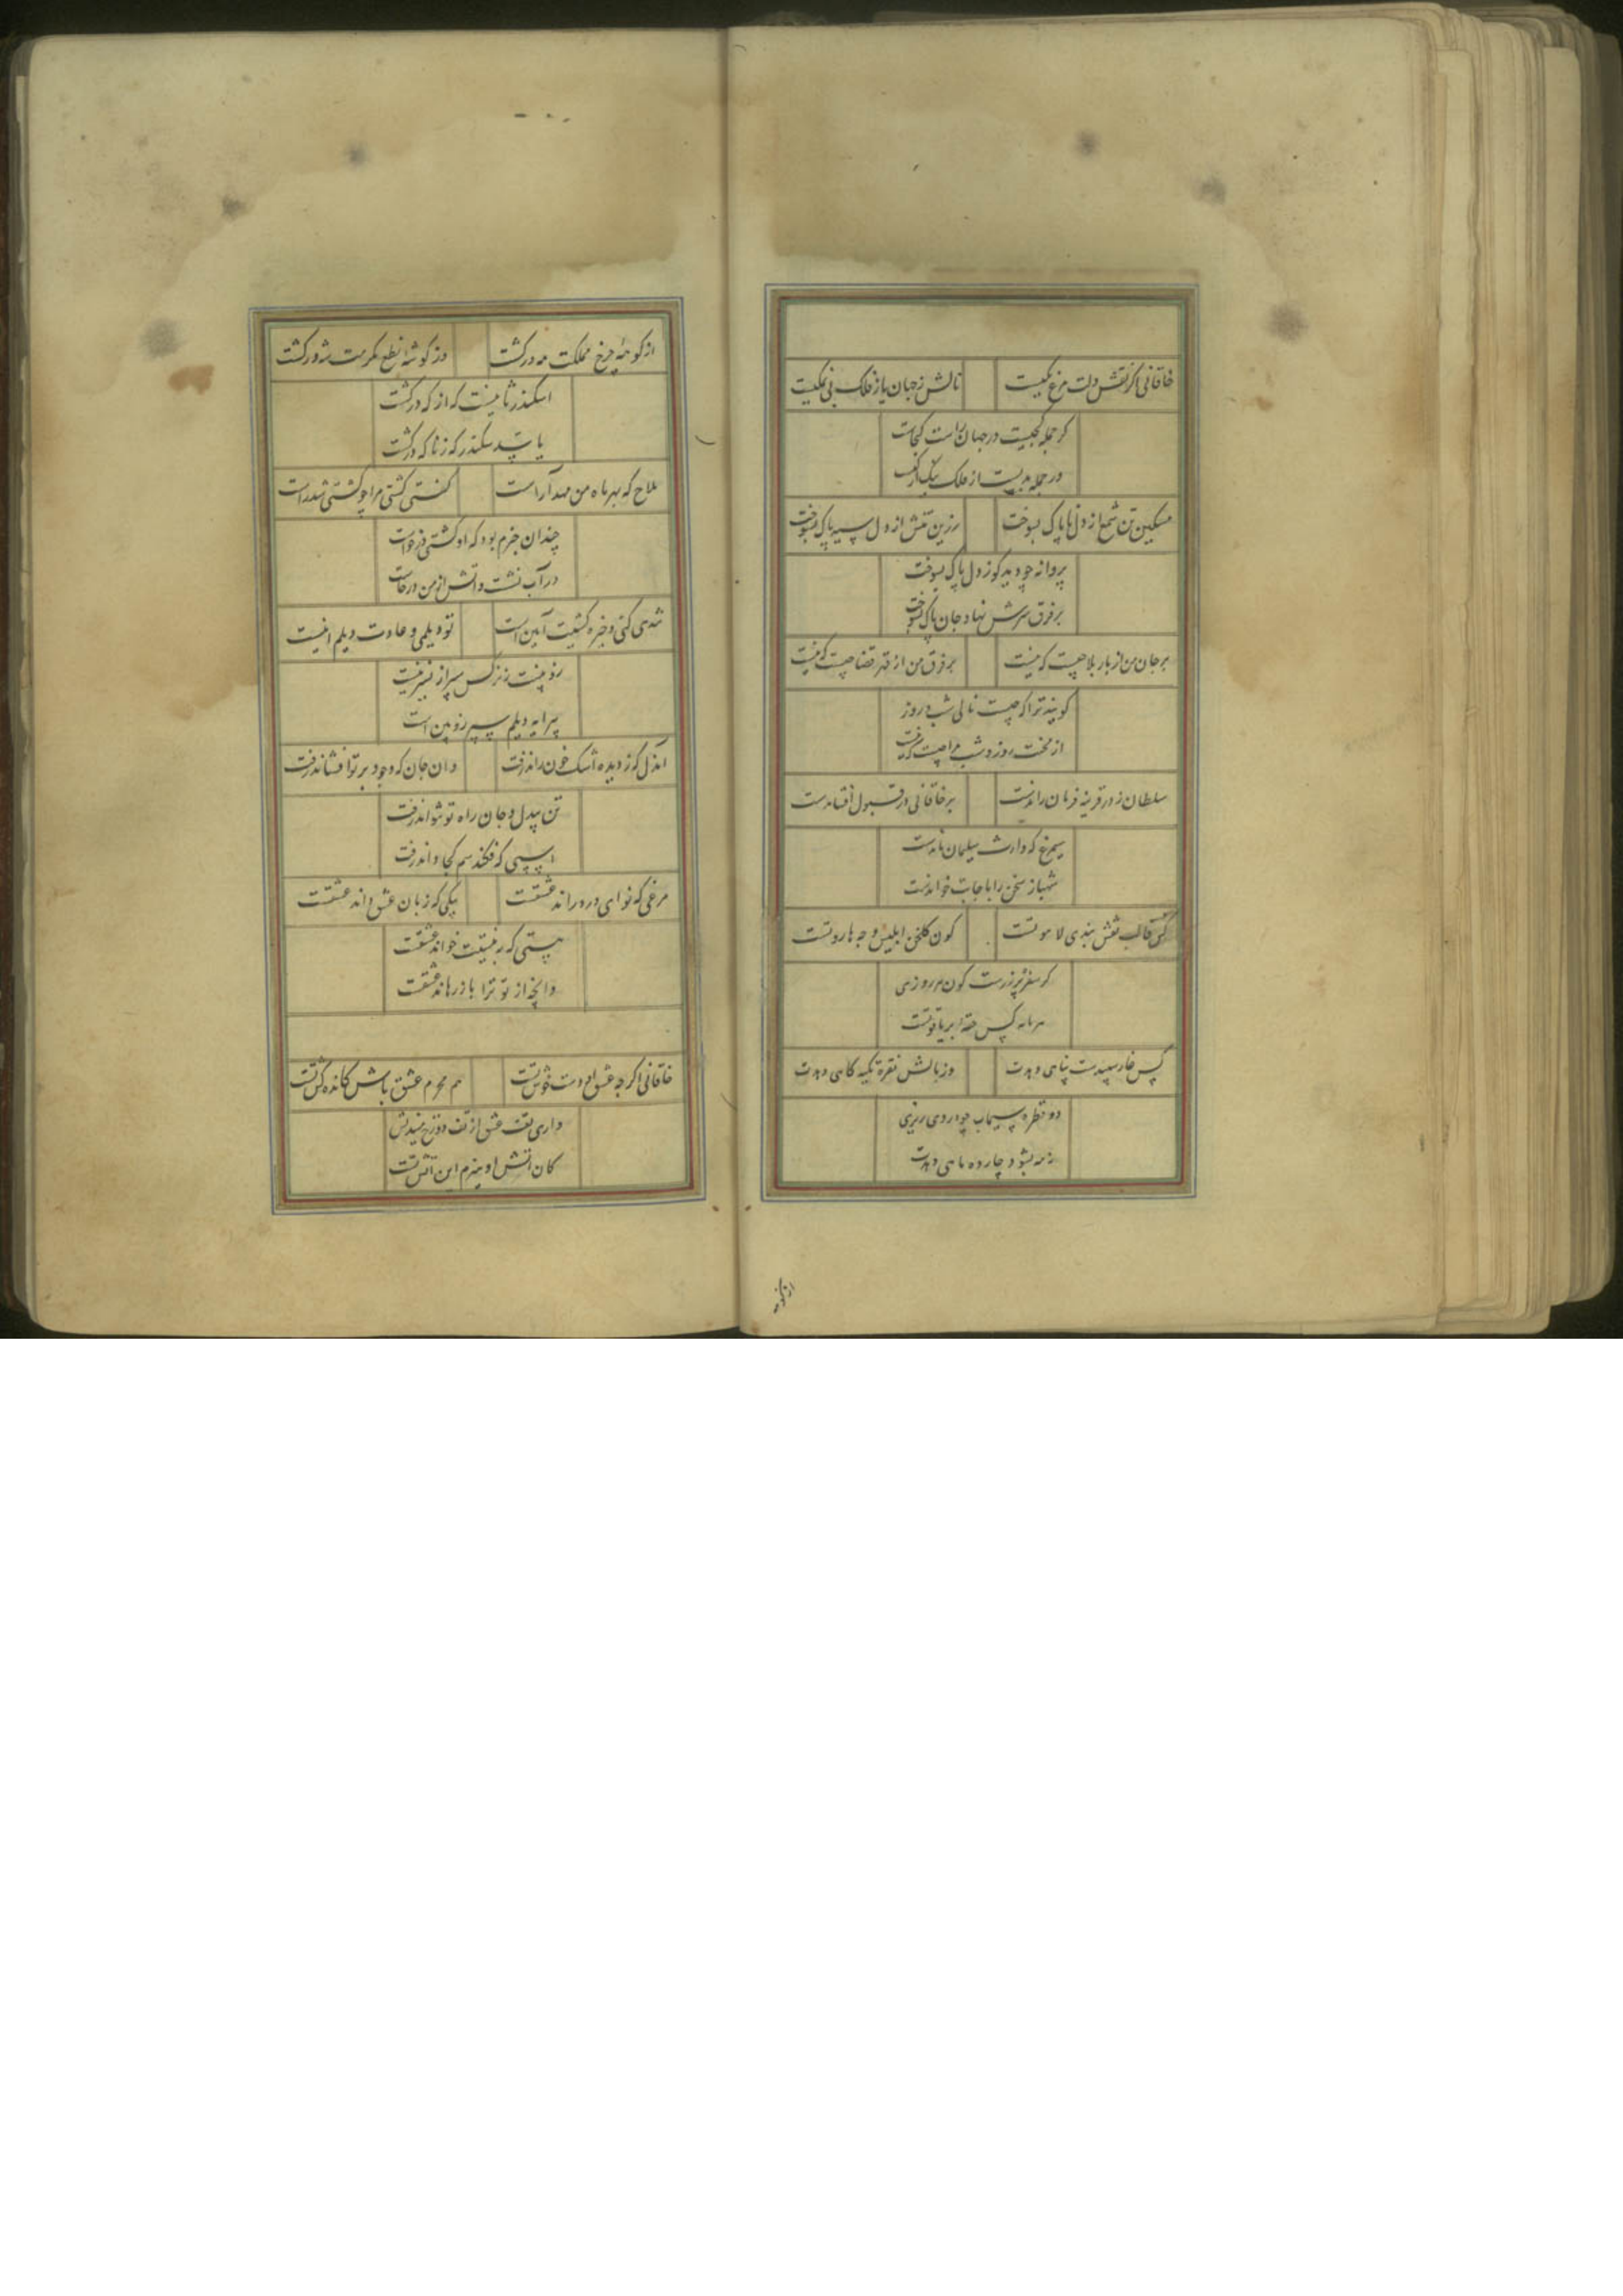 خاقانی اگر نقش دلت مرغ یکیست
نالش ز جهان یا ز فلک بی نمکیست
کر جمله کجیست در جهان راست کجاست
ور جمله بدیست از فلک نیک از کیست
مسکین تن شمع از دل ناپاک بسوخت
زرین تنش از دل سیه پاک بسوخت
پروانه چو دید کو ز دل پاک بسوخت
بر فرق سرش نهاد جان پاک بسوخت
بر جان من از بار بلا چیست که نیست
بر فرق من از قهر قضا چیست که نیست
کویند ترا که چیست نالی شب و روز
از محنت روز و شب مرا چیست که نیست
سلطان ز در قونیه فرمان راندست
بر خاقانی در قبول افشاندست
سیمرغ که وارث سلیمان ماندست
شهباز سخن را باجابت خواندست
کی قالب نقش بندی لاهوتست
کون کلخن ابلیس و چه هاروتست
کر سفره پر زرست کون هر روزی
سرمایه کیس حقه پر یاقوتست
کس غار سپیدست پناهی دهدت
وز بالش نقره تکیه کاهی دهدت
دو قطره سیماب چو در وی ریزی
نه مه بشود چارده ماهی دهدت
از کوهه
از کوهه چرخ مملکت مه در کشت
وز کوشه نطع مکرمت شه در کشت
اسکندر ثانیست که از که در کشت
یا سد سکندر که ز ناکه در کشت
ملاح که بهر ماه من مهد آراست
کفتی کشتی مرا چو کشتی شد راست
چندان خبرم بود که او کشتی خواست
در آب نشست و آتش از من برخاست
شدی کنی و خیره کشیت آیین است
تو دیلمی و عادت دیلم اینست
زوبینت ز نرکس سپر از نسرینست
پیرایه دیلم سپر و زوبین است
آن دل که ز دیده اشک خون راند رفت
وان جان که وجود بر تو افشاند رفت
تن بیدل و جان راه تو نتواند رفت
اسپی که فکند سم کجا داند رفت
مرغی که نوای درد راند عشقت
پیکی که زبان عشق داند عشقت
هستی که به نیستیت خواند عشقت
وانچ از تو ترا باز رهاند عشقت
خاقانی اکرچه عشق دوست خوش تست
هم محرم عشق باش کانده کش تست
داری تف عشق از تف دوزخ مندیش
کان آتش او هیزم این آتش تست